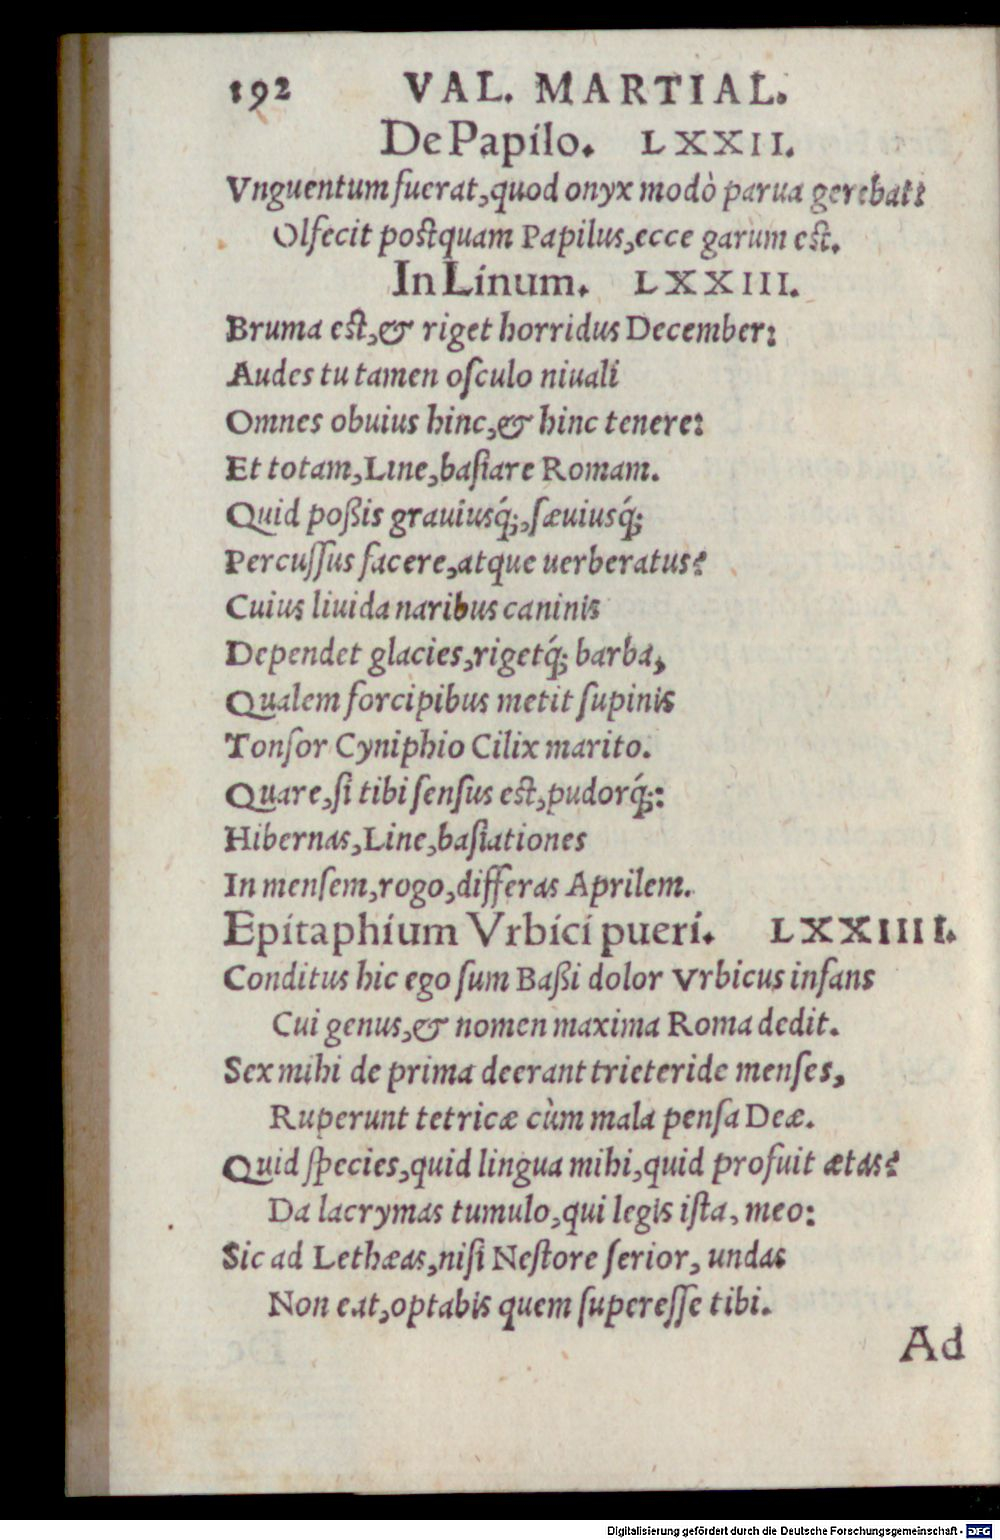 192 VAL. MARTIAL.
De Papilo. LXXII.
Vnguentum fuerat, quod onyx modò parua gerebat:
Olfecit postquam Papilus, ecce garum est.
In Linum. LXXIII.
Bruma est, & riget horridus December:
Audes tu tamen osculo niuali
Omnes obuius hinc, & hinc tenere:
Et totam, Line, basiare Romam.
Quid poßis grauiusq́;, sæuiusq́;
Percussus facere, atque uerberatus?
Cuius liuida naribus caninis
Dependet glacies, rigetq́; barba,
Qualem forcipibus metit supinis
Tonsor Cyniphio Cilix marito.
Quare, si tibi sensus est, pudorq́;:
Hibernas, Line, basiationes
In mensem, rogo, differas Aprilem.
Epitaphium Vrbici pueri. LXXIIII.
Conditus hic ego sum Baßi dolor Vrbicus infans
Cui genus, & nomen maxima Roma dedit.
Sex mihi de prima deerant trieteride menses,
Ruperunt tetricæ cùm mala pensa Deæ.
Quid species, quid lingua mihi, quid profuit ætas?
Da lacrymas tumulo, qui legis ista, meo:
Sic ad Lethæas, nisi Nestore serior, undas
Non eat, optabis quem superesse tibi.
Ad
Digitalisierung gefördert durch die Deutsche Forschungsgemeinschaft - DFG